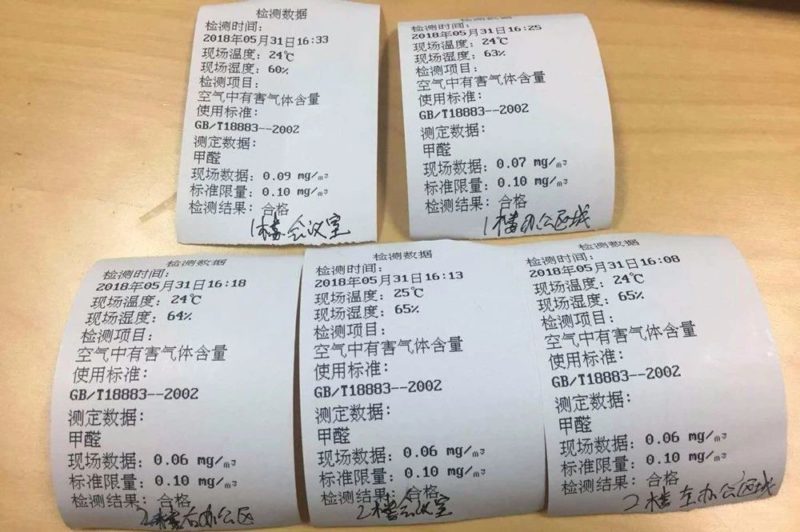 检测数据
检测时间:
2018年05月31日16:33
现场温度: 24℃
现场湿度: 60%
检测项目:
空气中有害气体含量
使用标准:
GB/T18883--2002
测定数据:
甲醛
现场数据: 0.09 mg/m³
标准限量: 0.10 mg/m³
检测结果: 合格
1楼会议室
检测数据
检测时间:
2018年05月31日16:25
现场温度: 24℃
现场湿度: 63%
检测项目:
空气中有害气体含量
使用标准:
GB/T18883--2002
测定数据:
甲醛
现场数据: 0.07 mg/m³
标准限量: 0.10 mg/m³
检测结果: 合格
1楼办公区域
检测数据
检测时间:
2018年05月31日16:18
现场温度: 24℃
现场湿度: 64%
检测项目:
空气中有害气体含量
使用标准:
GB/T18883--2002
测定数据:
甲醛
现场数据: 0.06 mg/m³
标准限量: 0.10 mg/m³
检测结果: 合格
2楼右办公区
检测数据
检测时间:
2018年05月31日16:13
现场温度: 25℃
现场湿度: 65%
检测项目:
空气中有害气体含量
使用标准:
GB/T18883--2002
测定数据:
甲醛
现场数据: 0.06 mg/m³
标准限量: 0.10 mg/m³
检测结果: 合格
2楼会议室
检测数据
检测时间:
2018年05月31日16:08
现场温度: 24℃
现场湿度: 65%
检测项目:
空气中有害气体含量
使用标准:
GB/T18883--2002
测定数据:
甲醛
现场数据: 0.06 mg/m³
标准限量: 0.10 mg/m³
检测结果: 合格
2楼左办公区域